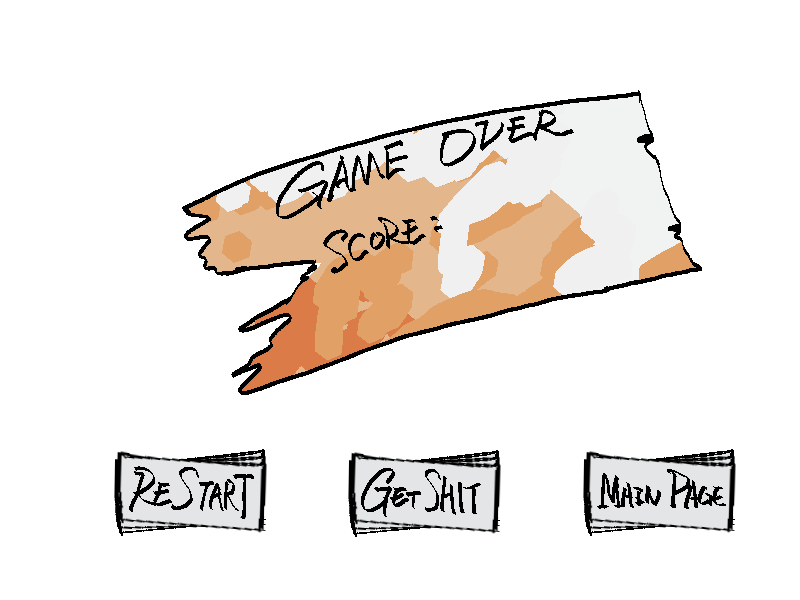 GAME OVER
SCORE:
RESTART
GET SHIT
MAIN PAGE